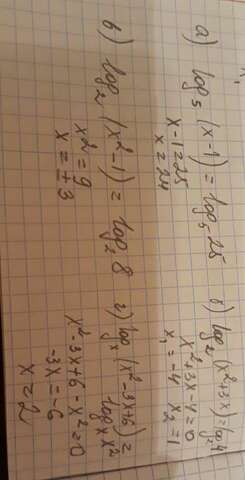 а) log₅ (x-1) = log₅ 25
x-1=25
x=24
б) log₂ (x²+3x)=log₂4
x²+3x-4=0
x₁=-4 x₂=1
в) log₂ (x²-1) = log₂ 8
x²=9
x=±3
г) logₓ (x²-3x+6)=
logₓ x²
x²-3x+6-x²=0
-3x=-6
x=2